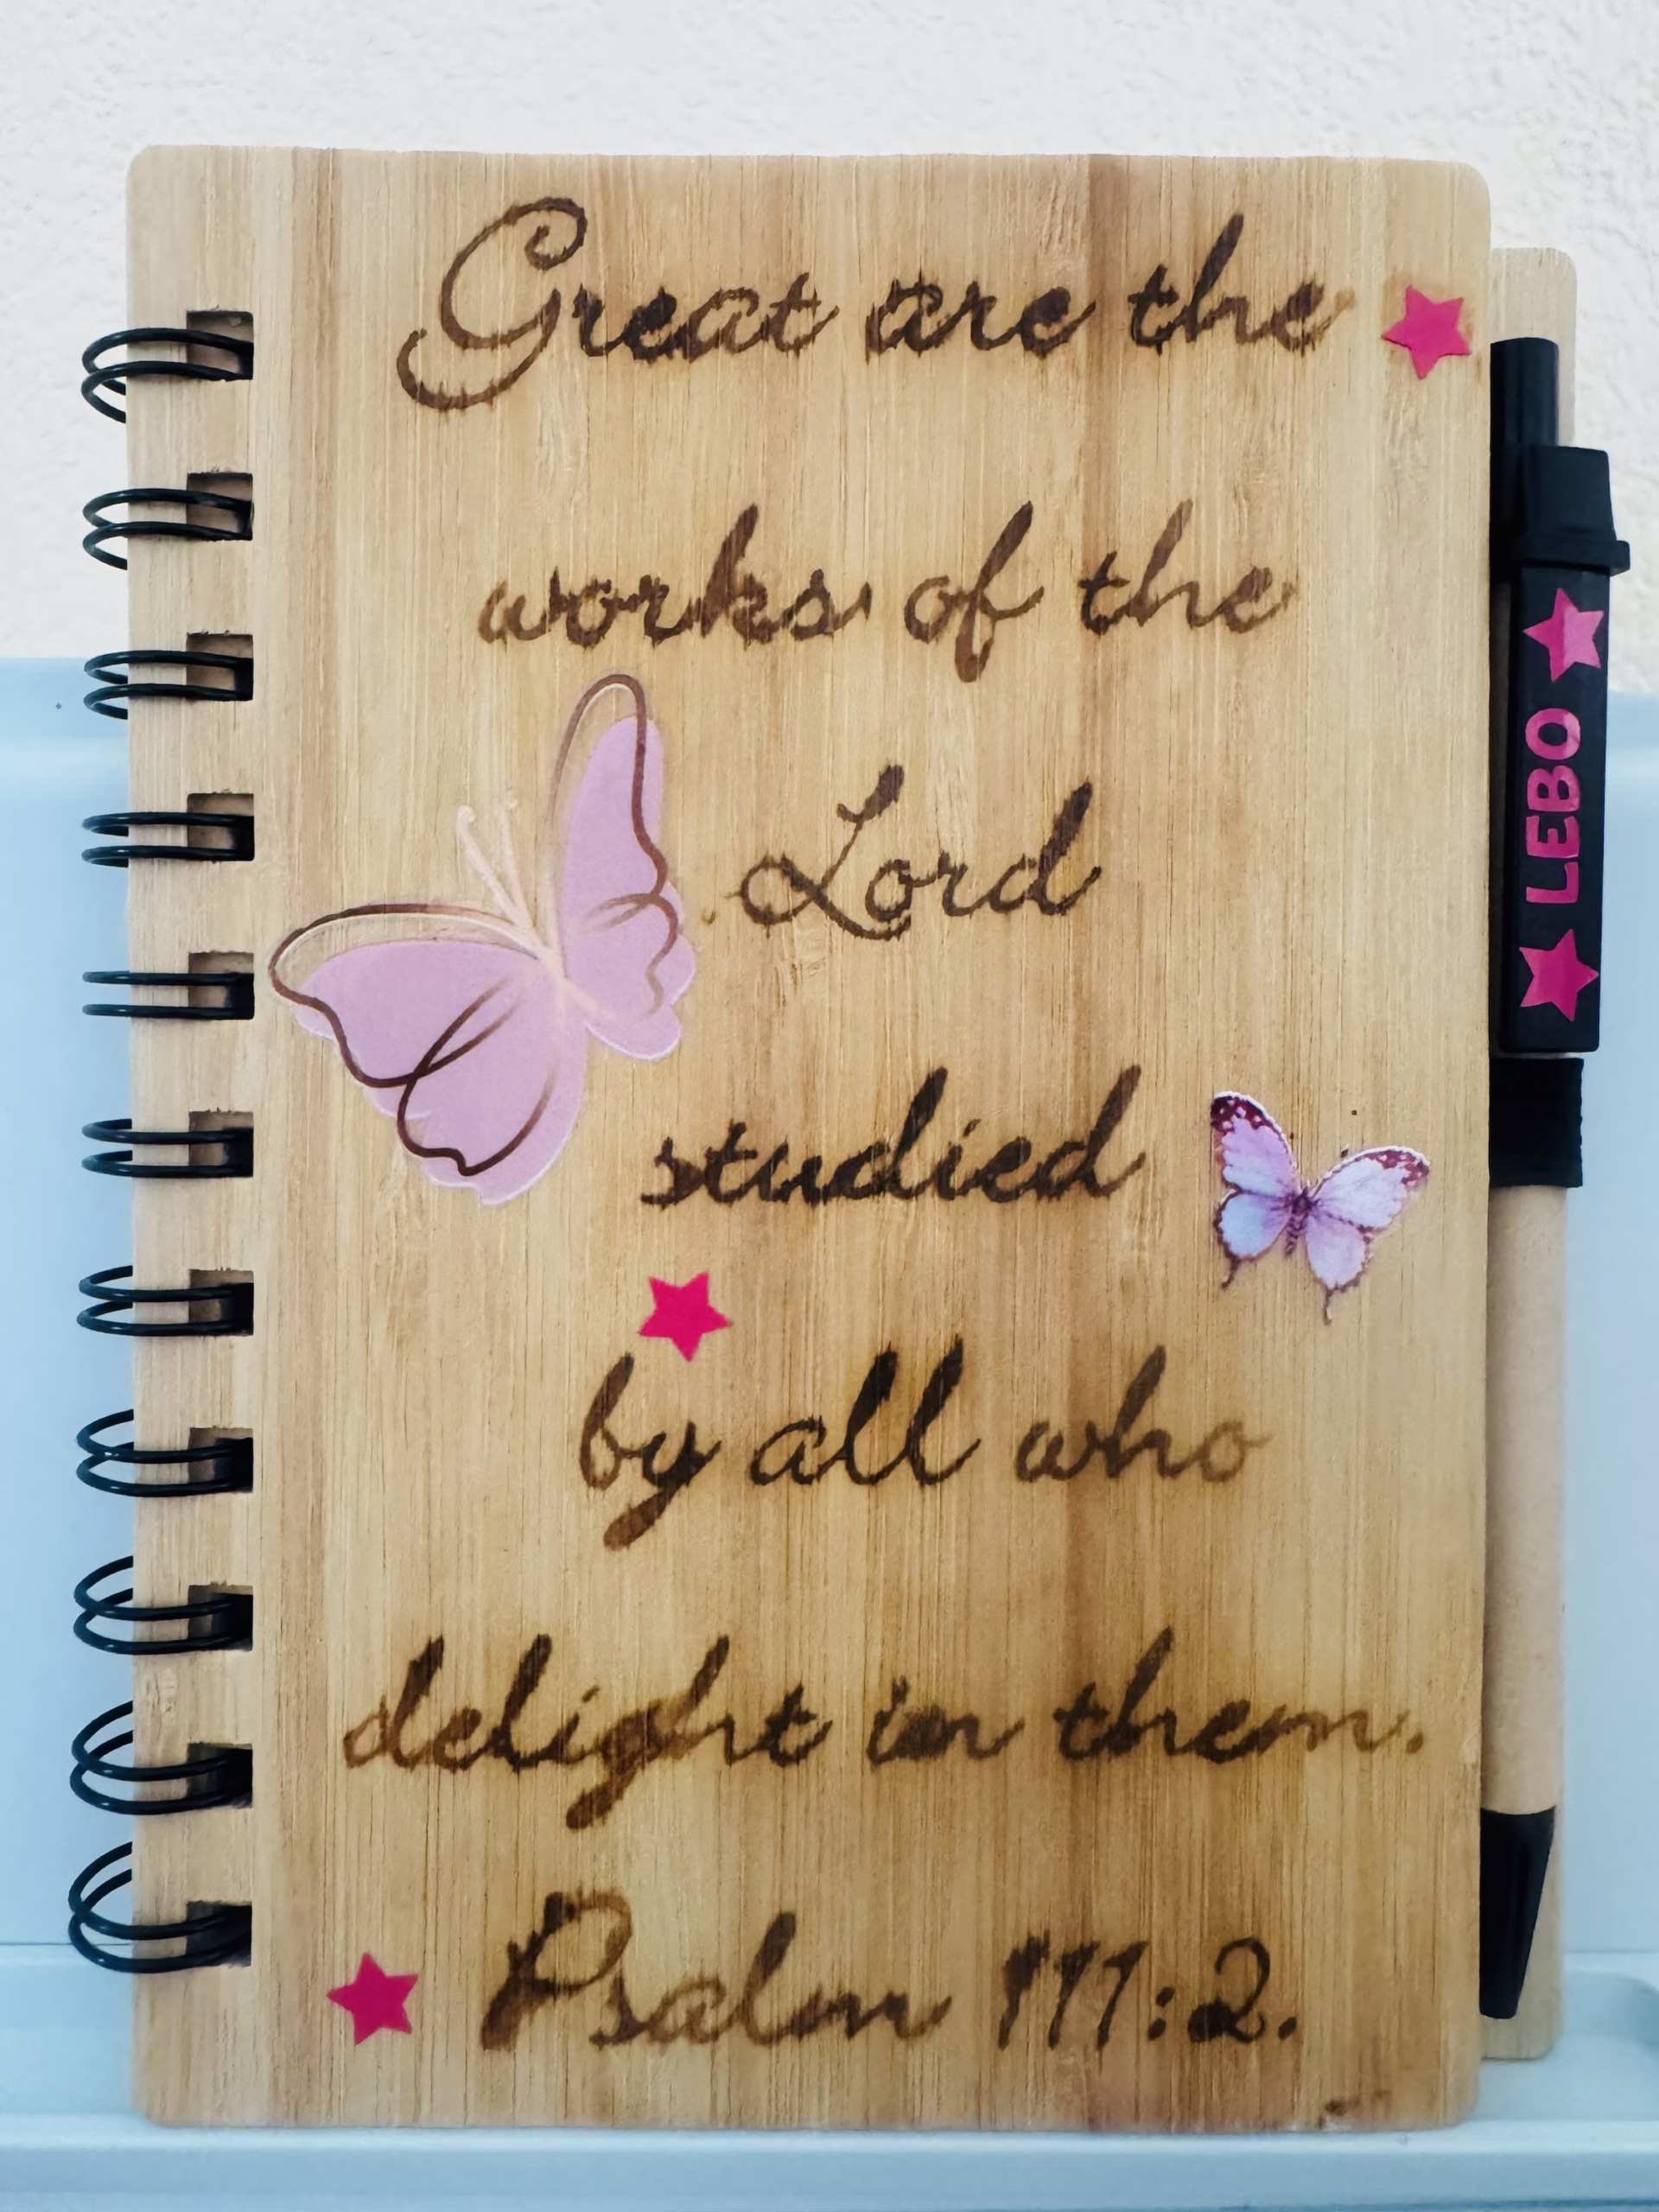 Great are the
works of the
Lord
studied
by all who
delight in them.
Psalm 111:2.
LEBO